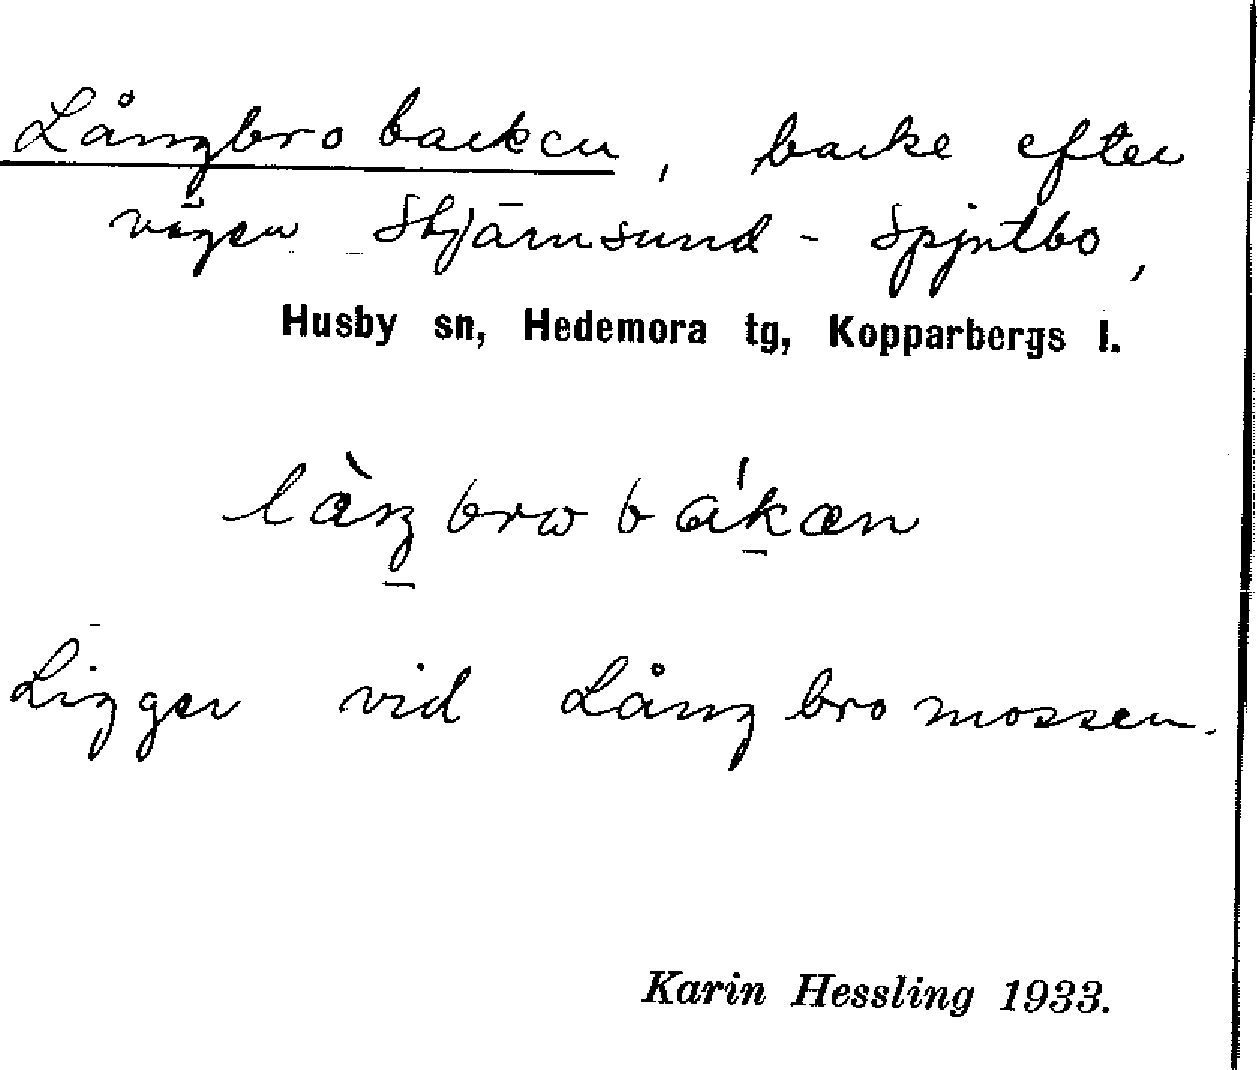 Långbrobacken, backe efter
vägen Stjärnsund - Spjutbo,
Husby sn, Hedemora tg, Kopparbergs l.
Ligger vid Långbromossen.
Karin Hessling 1933.